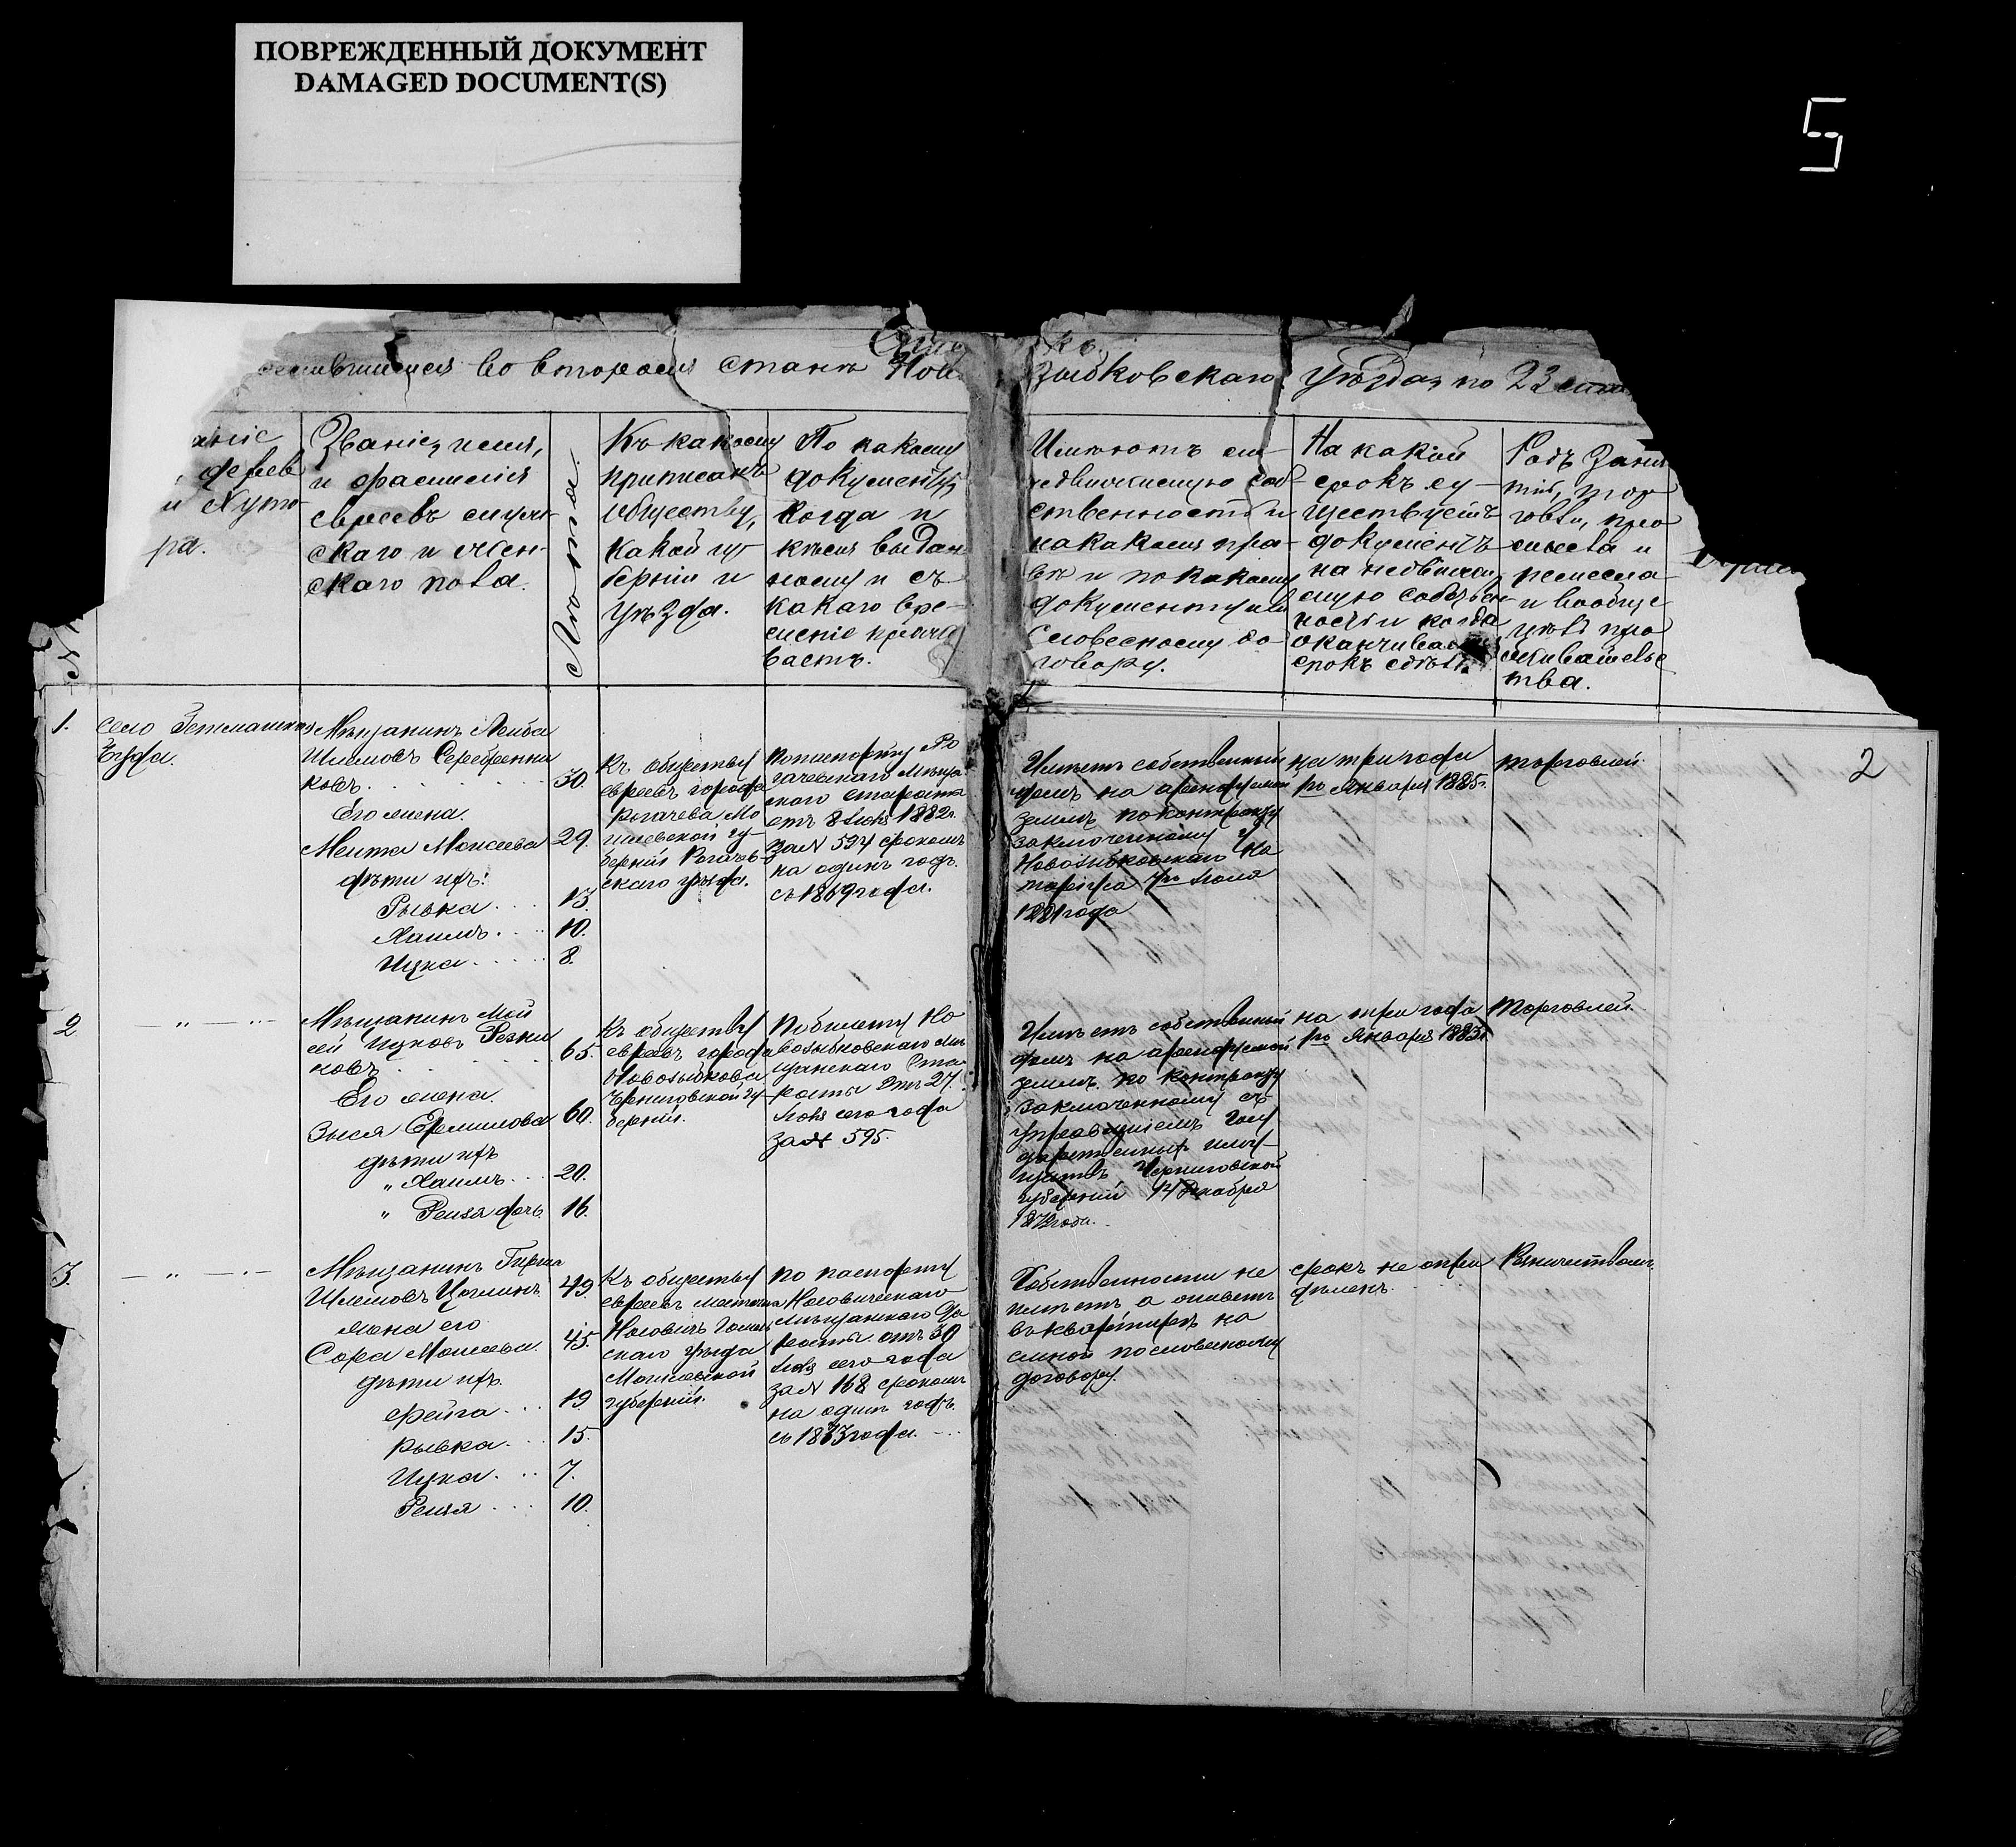 ПОВРЕЖДЕННЫЙ ДОКУМЕНТ
DAMAGED DOCUMENT(S)
5
во второмъ станѣ Ново
зыбковскаго уѣзда, по 23
аніе
дерев
и Хуто
ра.
Званіе, имя,
и фамилія
евреевъ мужс-
скаго и жен-
скаго пола.
Лѣта.
Къ какому
приписанъ
обществу,
какой гу-
берніи и
уѣзда.
По какому
документу,
когда и
кѣмъ выдан-
ному и съ
какаго вре-
мени прожи
ваетъ.
Имѣютъ ли
недвижимую соб-
ственность и
на какомъ пра-
вѣ и по какому
документу или
словесному до-
говору.
На какой
срокъ су-
ществуетъ
документъ
на недвижи
мую собствен
ность и когда
оканчивается
срокъ
Родъ заня
тій, тор
говли, про
мысла и
ремесла
и вообще
цѣль про
живательс
тва.
№
1.
село
Буда.
Мѣщанинъ Лейба
Шлiомовъ Серебренни
ковъ.
30.
Его жена.
Мента Моисеева 29.
дѣти ихъ:
Рывка 13.
Хаимъ 10.
Ицка 8.
Къ обществу
евреевъ города
Рогачева Мо
гилевской гу-
берніи Рогачев-
скаго уѣзда.
по паспорту Ро
гачевскаго мѣща
скаго старосты
отъ 8 1882г.
за № 594 срокомъ
на одинъ годъ.
съ 1869 года.
Имѣетъ собственный
домъ на арендуемой
землѣ по контракту
заключенному у
Новозыбковскаго Но
таріуса
1881 года
на три года
по Января 1885г.
торговлей.
2
2
— „ — „ —
Мѣщанинъ Мой
сей Ицковъ Резни
ковъ
65.
Его жена.
Зыся Ереминова 60.
дѣти ихъ
„ Хаимъ 20.
„ Рейза дочь 16.
Къ обществу
евреевъ города
Новозыбкова
Черниговской гу
берніи.
по билету Но
возыбковскаго мѣ
щанскаго Ста
росты отъ 27
сего года
за № 595.
Имѣетъ собственный
домъ на арендуемой
землѣ по контракту
заключенному съ
управленіемъ Госу
дарственныхъ иму-
ществъ Черниговской
губерніи 12 Декабря
года.
на три года
по Января 1883г.
Торговлей.
3.
— „ — „ —
Мѣщанинъ Гирша
Шлемовъ Цоглинъ 49.
жена его
Сора Моисеева 45.
дѣти ихъ.
Фейга 19
Рывка 15.
Ицка 7.
Рейзя 10.
Къ обществу
евреевъ местечка
Носовичъ Гомель
скаго уѣзда
Могилевской
губерніи.
по паспорту
Носовическаго
мѣщанскаго ста
росты отъ 30
сего года
за № 168 срокомъ
на одинъ годъ
съ 1873 года.
Собственности не
имѣетъ, а живетъ
въ квартирѣ на
емной по словесному
договору.
срокъ не опре
дѣленъ.